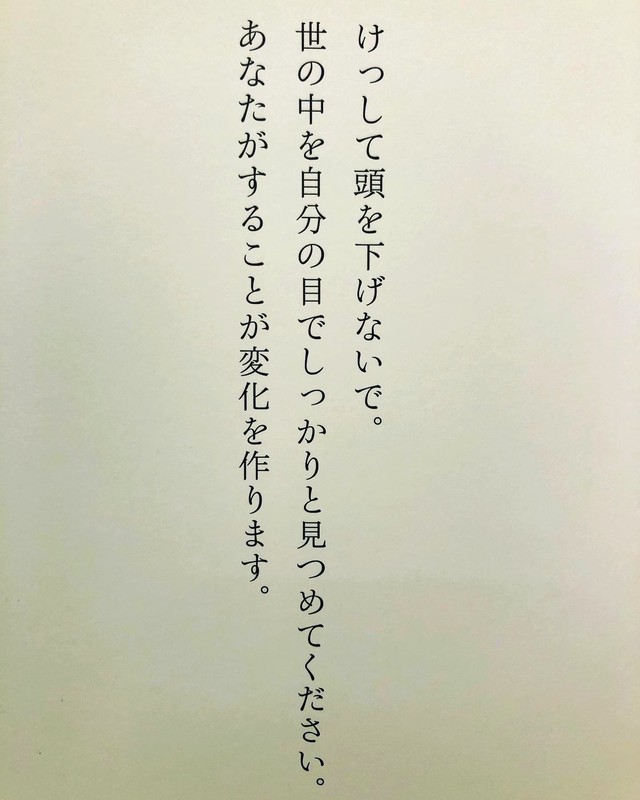 けっして頭を下げないで。
世の中を自分の目でしっかりと見つめてください。
あなたがすることが変化を作ります。